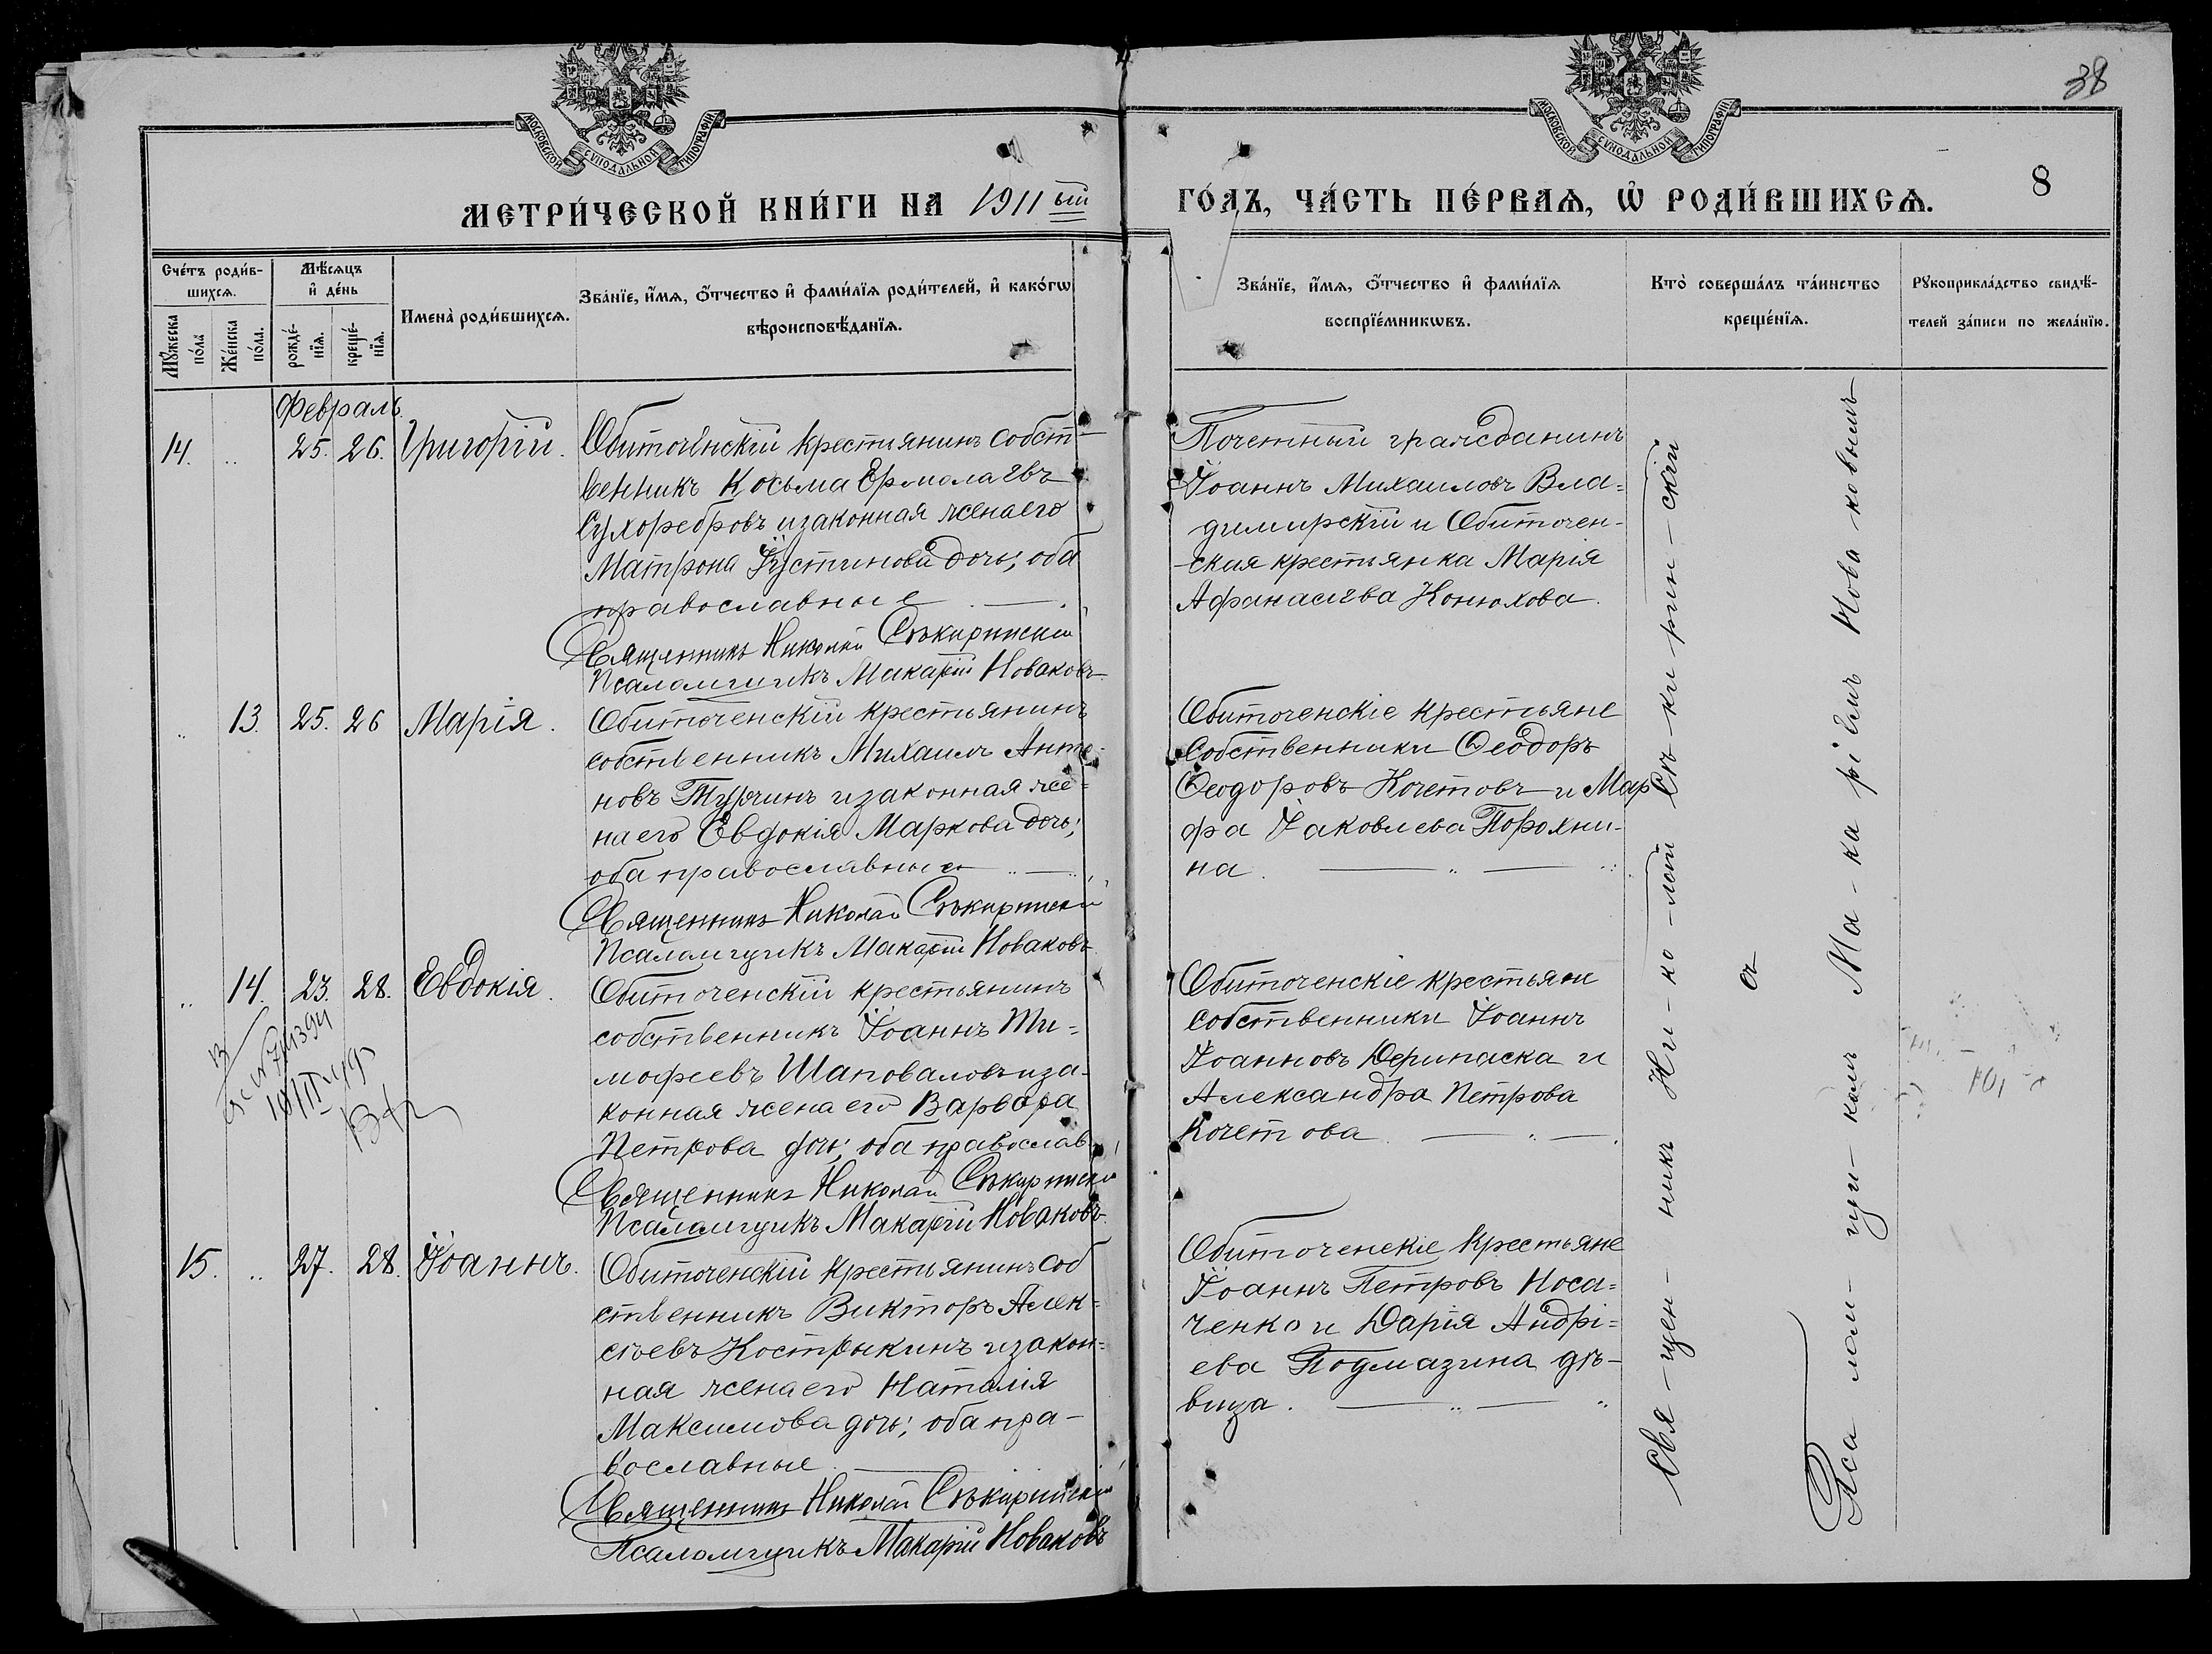 МОСКОВСКОЙ СѴНОДАЛЬНОЙ ТИПОГРАФІИ
МОСКОВСКОЙ СѴНОДАЛЬНОЙ ТИПОГРАФІИ
38
8
МЕТРИ́ЧЕСКОЙ КНИ́ГИ НА 1911 ый
ГО́ДЪ, ЧА́СТЬ ПЕ́РВАѦ, Ѡ҆ РОДИ́ВШИХСѦ.
Сче́тъ роди́в-
шихсѧ.
Мꙋ́жеска по́ла
Же́нска по́ла.
Мѣ́сѧцъ
и҆ де́нь
рожде́-
нїѧ.
креще́-
нїѧ.
Имена̀ роди́вшихсѧ.
Зва́нїе, и҆́мѧ, ѻ҆́тчество и҆ фами́лїѧ роди́телей, и҆ како́гѡ
вѣроисповѣ́данїѧ.
Зва́нїе, и҆́мѧ, ѻ҆́тчество и҆ фами́лїѧ
воспрїе́мникѡвъ.
Кто̀ соверша́лъ та́инство
креще́нїѧ.
Рꙋкоприкла́дство свидѣ́-
телей за́писи по жела́нїю.
Февраль.
14. .. 25. 26. Григорій.
Обиточенскій крестьянинъ собст-
венникъ Косьма Ермолаевъ
Сухоребровъ и законная жена его
Матрона Іустинова дочь; оба
православные
Священникъ Николай Сѣкиринскій
Псаломщикъ Макарій Новаковъ
Почетный гражданинъ
Іоаннъ Михаиловъ Вла=
димирскій и Обиточен-
-ская крестьянка Марія
Афанасіева Конюхова.
.. 13. 25. 26 Марія.
Обиточенскій крестьянинъ
собственникъ Михаилъ Анто-
новъ Турчинъ и законная же=
на его Евдокія Маркова дочь;
оба православные
Священникъ Николай Сѣкиринскій
Псаломщикъ Макарій Новаковъ
Обиточенскіе крестьяне
собственники Ѳеодоръ
Ѳеодоровъ Кочетовъ и Мар
фа Іаковлева Порохни-
на.
.. 14. 23. 28. Евдокія.
Обиточенскій крестьянинъ
собственникъ Іоаннъ Ти=
мофеевъ Шаповаловъ и за-
конная жена его Варвара
Петрова дочь; оба православ.
Священникъ Николай Сѣкиринскій
Псаломщикъ Макарій Новаковъ
Обиточенскіе крестьяне
собственники Іоаннъ
Іоанновъ Дерипаска и
Александра Петрова
Кочетова.
15. .. 27. 28. Іоаннъ.
Обиточенскій крестьянинъ соб
ственникъ Викторъ Алек=
сѣевъ Кострыкинъ и закон=
ная жена его Наталія
Максимова дочь; оба пра-
вославные.
Священникъ Николай Сѣкиринскій
Псаломщикъ Макарій Новаковъ
Обиточенскіе крестьяне
Іоаннъ Петровъ Носа=
ченко и Дарія Андрі=
ева Подмазина дѣ-
вица.
Свя-щен-никъ Ни-ко-лай Сѣ-ки-рин-скій
съ
Пса-лом-щи-комъ Ма-ка-ріемъ Нова-ковымъ